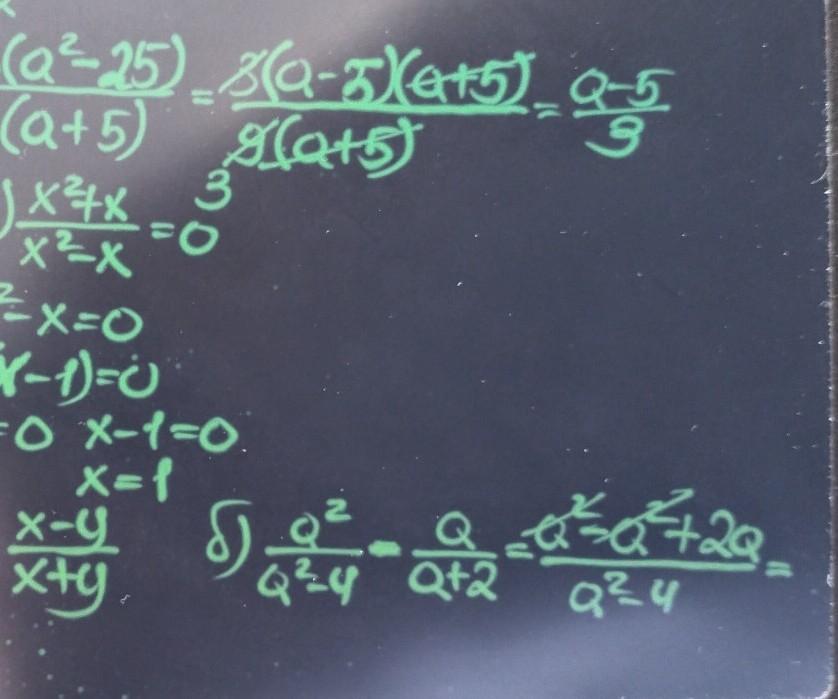 (a²-25)/(a+5) = 3(a-5)(a+5)/9(a+5) = a-5/3
3
) x²+x/x²-x = 0
²-x=0
x-1)=0
=0 x-1=0
x=1
x-y/x+y б) a²/a²-4 - a/a+2 = a²-a²+2a/a²-4 =